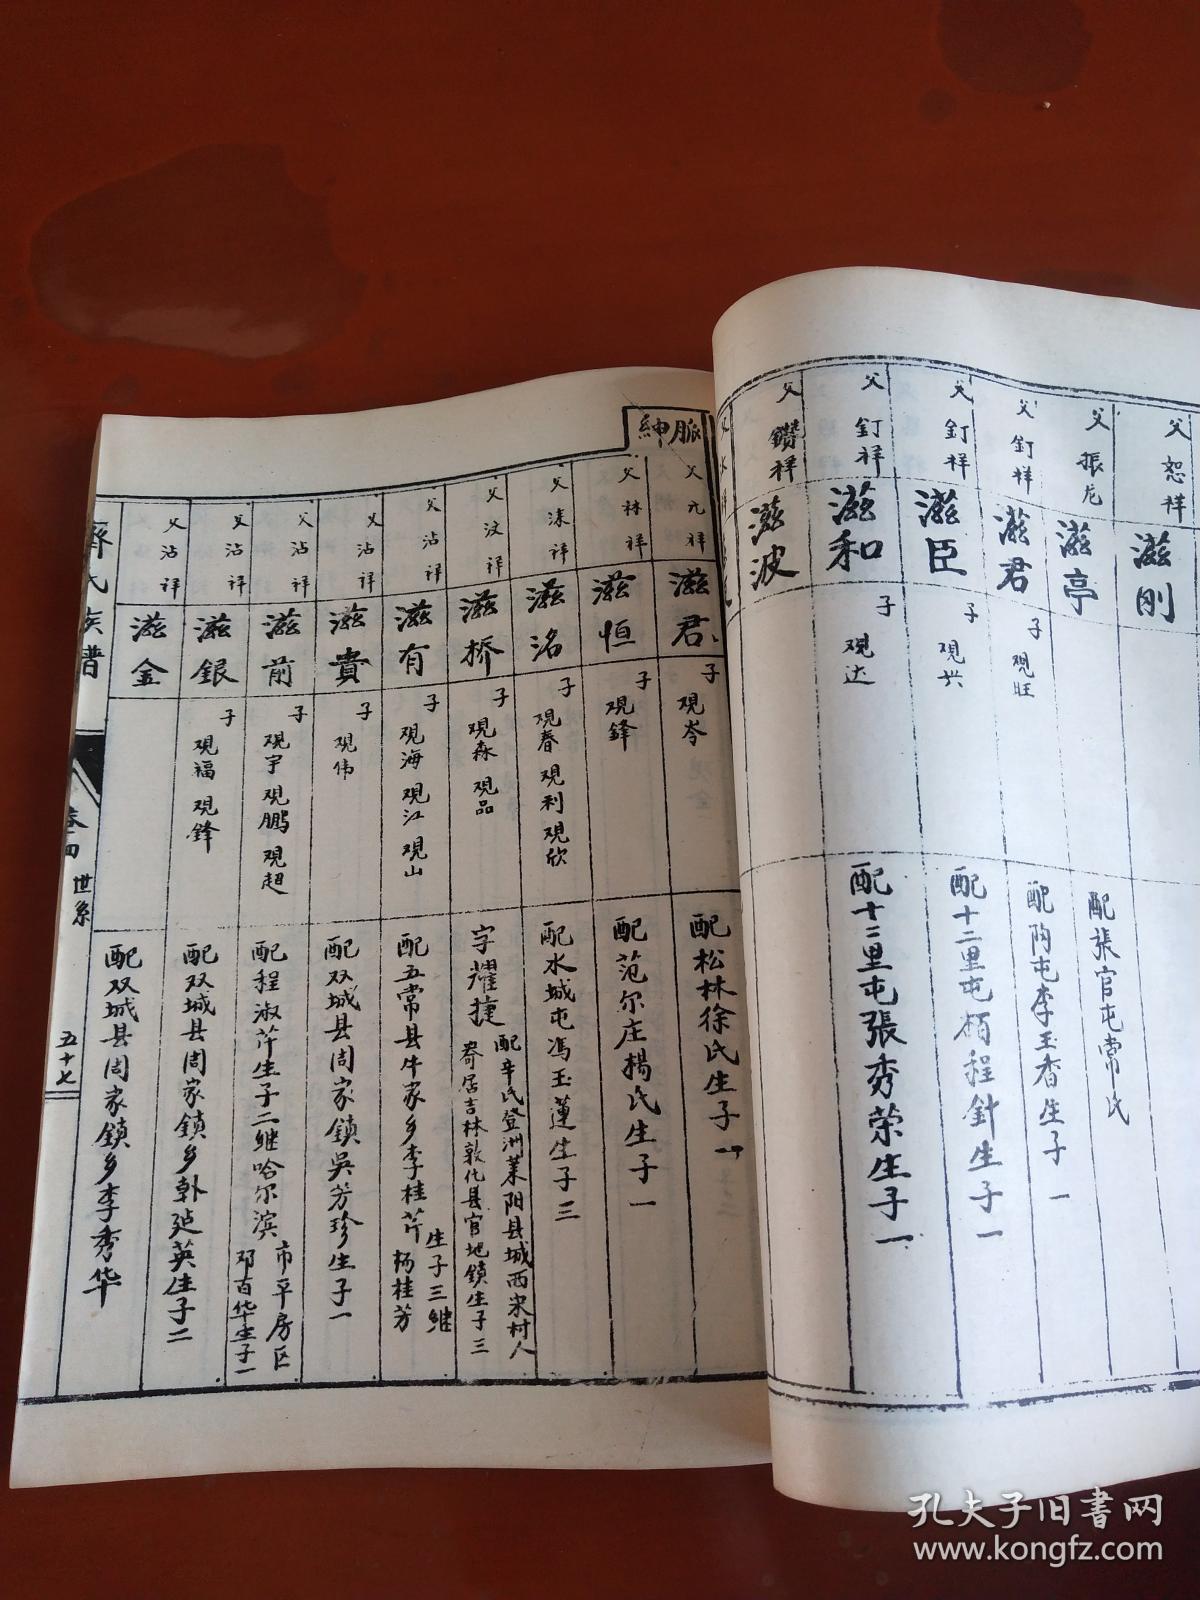 父 恕祥
滋刚
父 振龙
滋亭
配張官屯常氏
父 釘祥
滋君
子 观旺
配陶屯李玉香生子一
父 釘祥
滋臣
子 观兴
配十二里屯栢程針生子一
父 釘祥
滋和
子 观达
配十二里屯張秀荣生子一
父 鑽祥
滋波
紳脈
父 九祥
滋君
子 观岑
配松林徐氏生子一
父 林祥
滋恒
子 观鋒
配范尔庄楊氏生子一
父 洡祥
滋洺
子 观春 观利 观欣
配水城屯馮玉蓮生子三
父 汶祥
滋桥
子 观森 观品
字耀捷
配辛氏登洲莱阳县城西宋村人
寄居吉林敦化县官地鎮生子三
父 沾祥
滋有
子 观海 观江 观山
配五常县牛家乡李桂芹
生子三继
杨桂芳
父 沾祥
滋貴
子 观伟
配双城县周家鎮吳芳珍生子一
父 沾祥
滋前
子 观宇 观鹏 观超
配程淑萍生子二继哈尔滨
市平房区
邓百华生子一
父 沾祥
滋銀
子 观福 观鋒
配双城县周家鎮乡韩延英生子二
父 沾祥
滋金
配双城县周家鎮乡李秀华
齊氏族譜
卷四 世系
五十七
孔夫子旧书网
www.kongfz.com